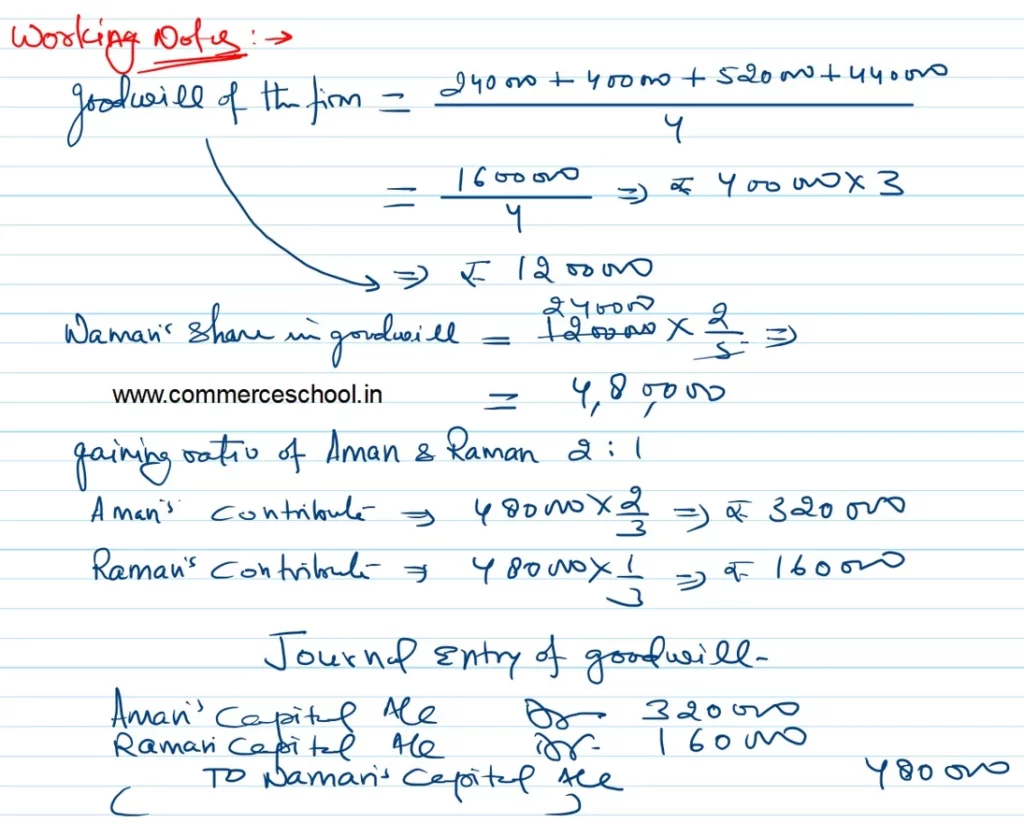 Working Notes :→
goodwill of the firm = 240000 + 400000 + 520000 + 440000
4
= 1600000 / 4 ⇒ ₹ 400000 × 3
⇒ ₹ 1200000
240000
Waman's share in goodwill = 1200000 × 2/5 ⇒
www.commerceschool.in = 4,80,000
gaining ratio of Aman & Raman 2 : 1
Aman's contribute ⇒ 480000 × 2/3 ⇒ ₹ 320000
Raman's contribute ⇒ 480000 × 1/3 ⇒ ₹ 160000
Journal Entry of goodwill-
Aman's Capital A/c Dr 320000
Raman Capital A/c Dr. 160000
To Naman's Capital A/c 480000
( )